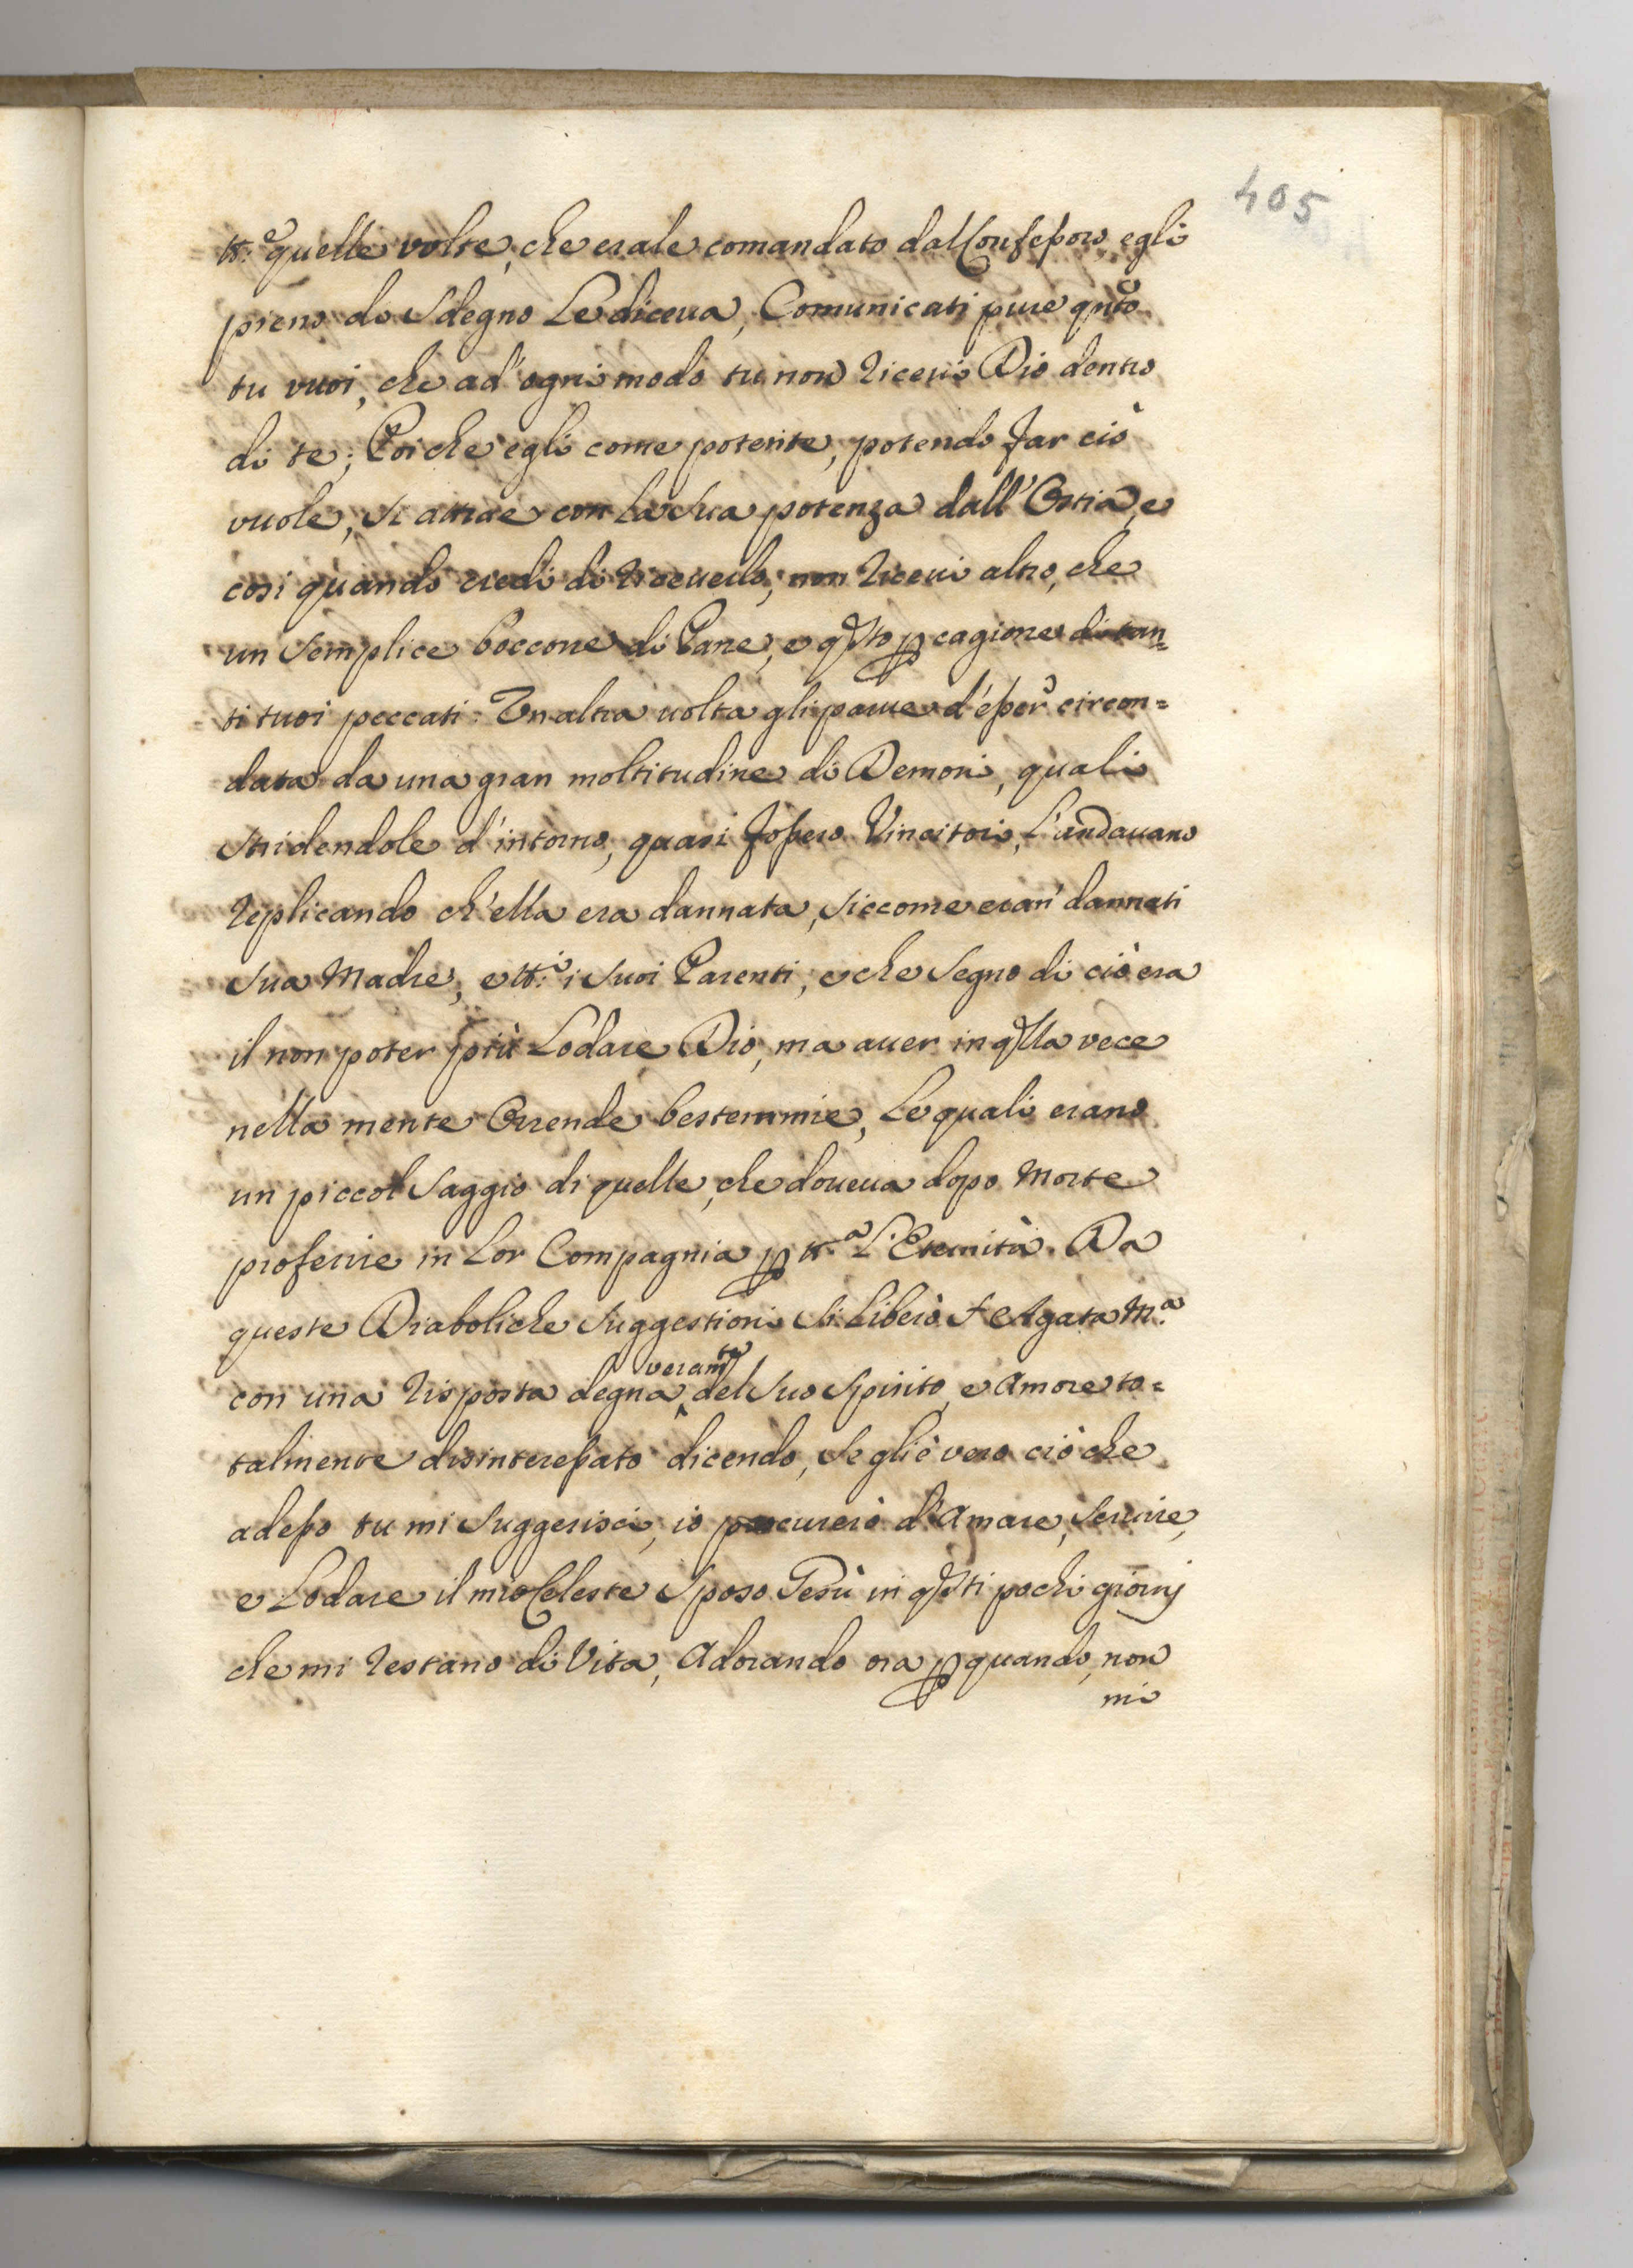 405
tt.e quelle volte, che erale comandato dal Confessore, egli
pieno di Sdegno Le diceua, Comunicati pure qnto
tu vuoi, che ad' ogni modo tu non riceui Dio dentro
di te; Poiche egli come potente, potendo far ciò
vuole, si attrae con La Sua potenza dall' Ostia, e
cosi quando credi di riceuerlo, non riceui altro, che
un Semplice boccone di Pane, e qsto p cagione di tan=
ti tuoi peccati. Un altra uolta gli parue d'esser circon=
data da una gran moltitudine di Demoni, quali
Stridendole d'intorno, quasi fossero Vincitori, L'andauano
replicando ch'ella era dannata, Siccome eran' dannati
Sua Madre, e tt.i i Suoi Parenti, e che Segno di ciò era
il non poter più Lodare Dio, ma auer in qlla vece
nella mente Orrende bestemmie, Le quali erano
un piccol Saggio di quelle, che doueua dopo Morte
proferire in Lor Compagnia p tt.a L'Eternità. Da
queste Diaboliche Suggestioni Si Liberò S. Agata M.a
con una risposta degna veramte del Suo Spirito, e Amore to=
talmente disinteressato dicendo, Se gli è vero ciò che
adesso tu mi Suggerisci, io procurerò d'Amare, Seruire,
e Lodare il mio Celeste Sposo Gesù in qsti pochi giornj
che mi restano di Vita, Adorando ora p quando, non
mi